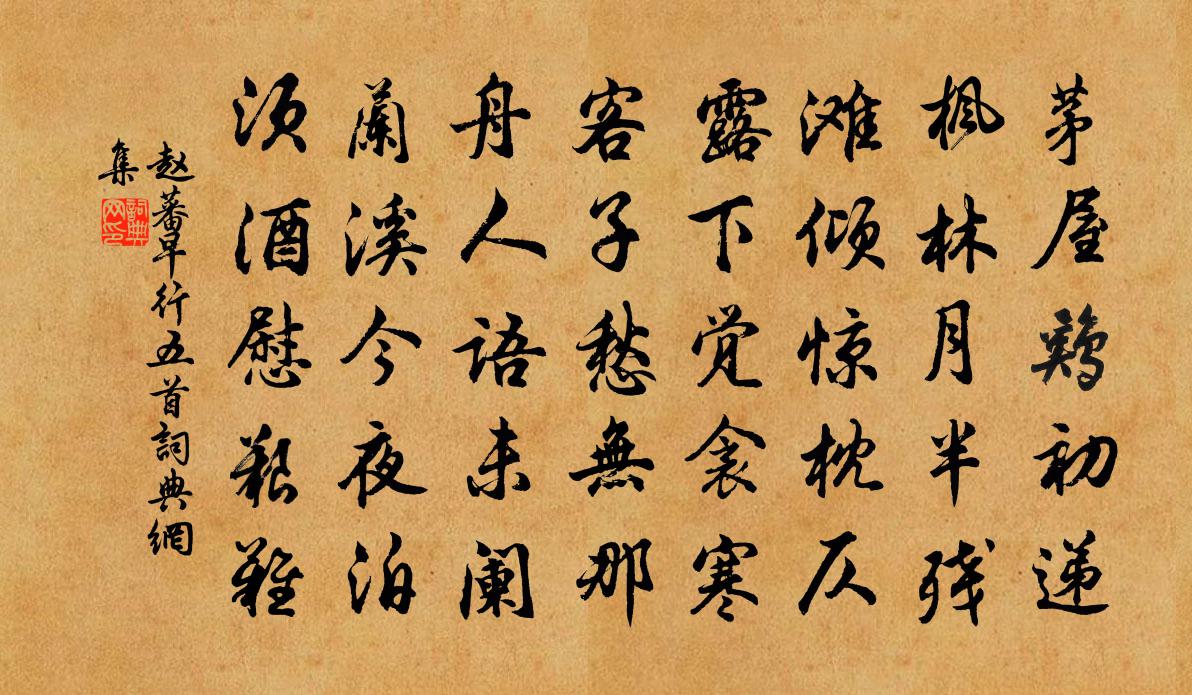 茅屋鷄初递
枫林月半残
滩倾惊枕仄
露下觉衾寒
客子愁無那
舟人语未阑
蘭溪今夜泊
须酒慰艰难
赵蕃早行五首詞典網
集
詞典网印